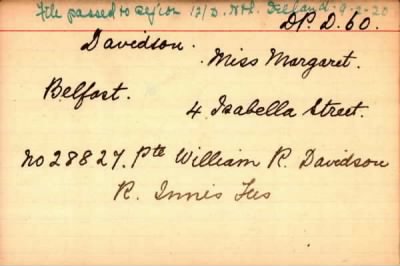 File passed to Rej'on 12/D. Nth. Ireland. 9-2-20
DP. D. 60.
Davidson.
Miss Margaret.
Belfast.
4 Isabella Street.
No 28827. Pte William R. Davidson
R. Innis Fus